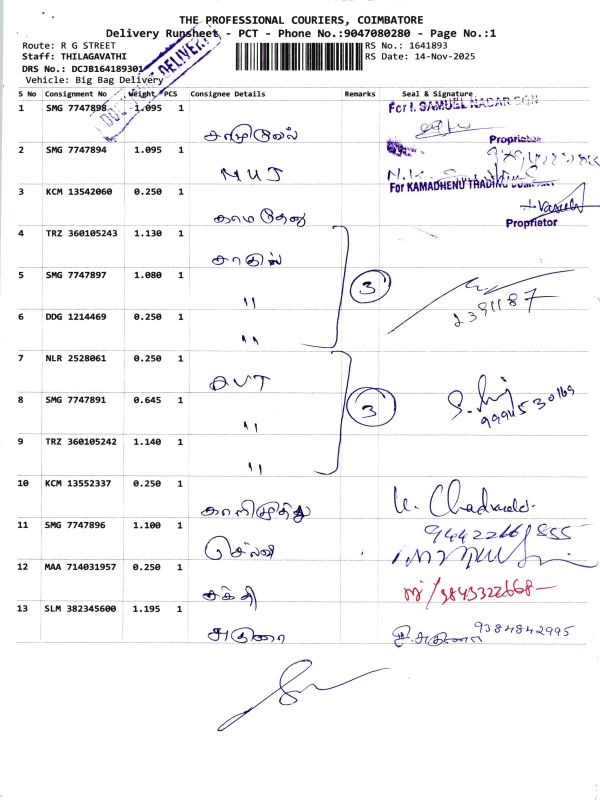 THE PROFESSIONAL COURIERS, COIMBATORE
Delivery Runsheet - PCT - Phone No.:9047080280 - Page No.:1
Route: R G STREET
RS No.: 1641893
Staff: THILAGAVATHI
RS Date: 14-Nov-2025
DRS No.: DCJB164189301
Vehicle: Big Bag Delivery
S No Consignment No Weight PCS Consignee Details Remarks Seal & Signature
1 SMG 7747898 1.095 1
For I. SAMUEL NADAR SON
சாமுவேல்
Proprietor
2 SMG 7747894 1.095 1
MUJ
For KAMADHENU TRADING COMPANY
3 KCM 13542060 0.250 1
காமதேனு
Proprietor
4 TRZ 360105243 1.130 1
5 SMG 7747897 1.080 1
" 3
2391187
6 DDG 1214469 0.250 1
"
7 NLR 2528061 0.250 1
8 SMG 7747891 0.645 1
" 3
9994530169
9 TRZ 360105242 1.140 1
"
10 KCM 13552337 0.250 1
காளிமுத்து
11 SMG 7747896 1.100 1
செல்வி
12 MAA 714031957 0.250 1
சக்தி
13 SLM 382345600 1.195 1
அருணை 9384842995